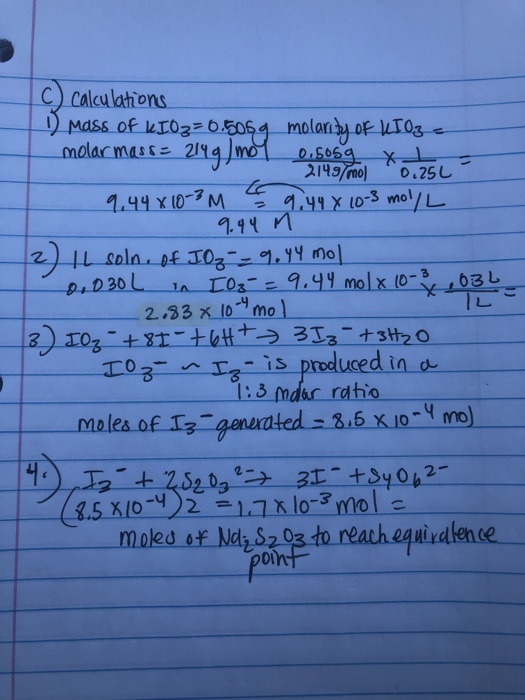 C) Calculations
1) Mass of KIO3 = 0.505g molarity of KIO3 =
molar mass = 214g/mol 0.505g / 214g/mol × 1 / 0.25L =
9.44 × 10-3 M = 9.44 × 10-3 mol/L
9.44 M
2) 1L soln. of IO3- = 9.44 mol
0.030L in IO3- = 9.44 mol × 10-3 × .03L / 1L =
2.83 × 10-4 mol
3) IO3- + 8I- + 6H+ → 3I3- + 3H2O
IO3- ~ I3- is produced in a
1:3 molar ratio
moles of I3- generated = 8.5 × 10-4 mol
4.) I3- + 2S2O3 2- → 3I- + S4O6 2-
(8.5 × 10-4)2 = 1.7 × 10-3 mol =
moles of Na2S2O3 to reach equivalence
point